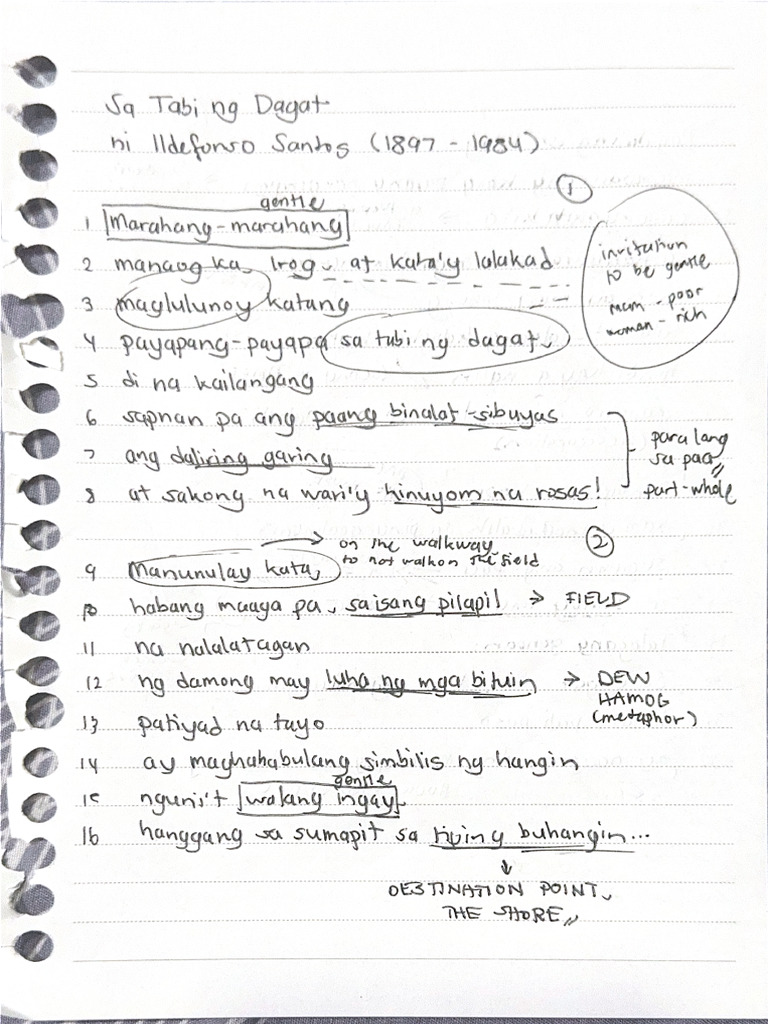 Sa Tabi ng Dagat
ni Ildefonso Santos (1897 - 1984)
gentle
①
1 Marahang-marahang
2 manaog ka, Irog, at kata'y lalakad
3 maglulunoy katang
4 payapang-payapa sa tabi ng dagat,
invitation
to be gentle
man - poor
woman - rich
5 di na kailangang
6 sapnan pa ang paang binalat-sibuyas
7 ang daliring garing
8 at sakong na wari'y hinuyom na rosas!
para lang
sa paa
part-whole
②
on the walkway
to not walk on the field
9 Manunulay kata,
10 habang maaga pa, sa isang pilapil → FIELD
11 na nalalatagan
12 ng damong may luha ng mga bituin → DEW
HAMOG
(metaphor)
13 patiyad na tayo
14 ay maghahabulang simbilis ng hangin
gentle
15 nguni't walang ingay
16 hanggang sa sumapit sa buhangin...
↓
DESTINATION POINT,
THE SHORE